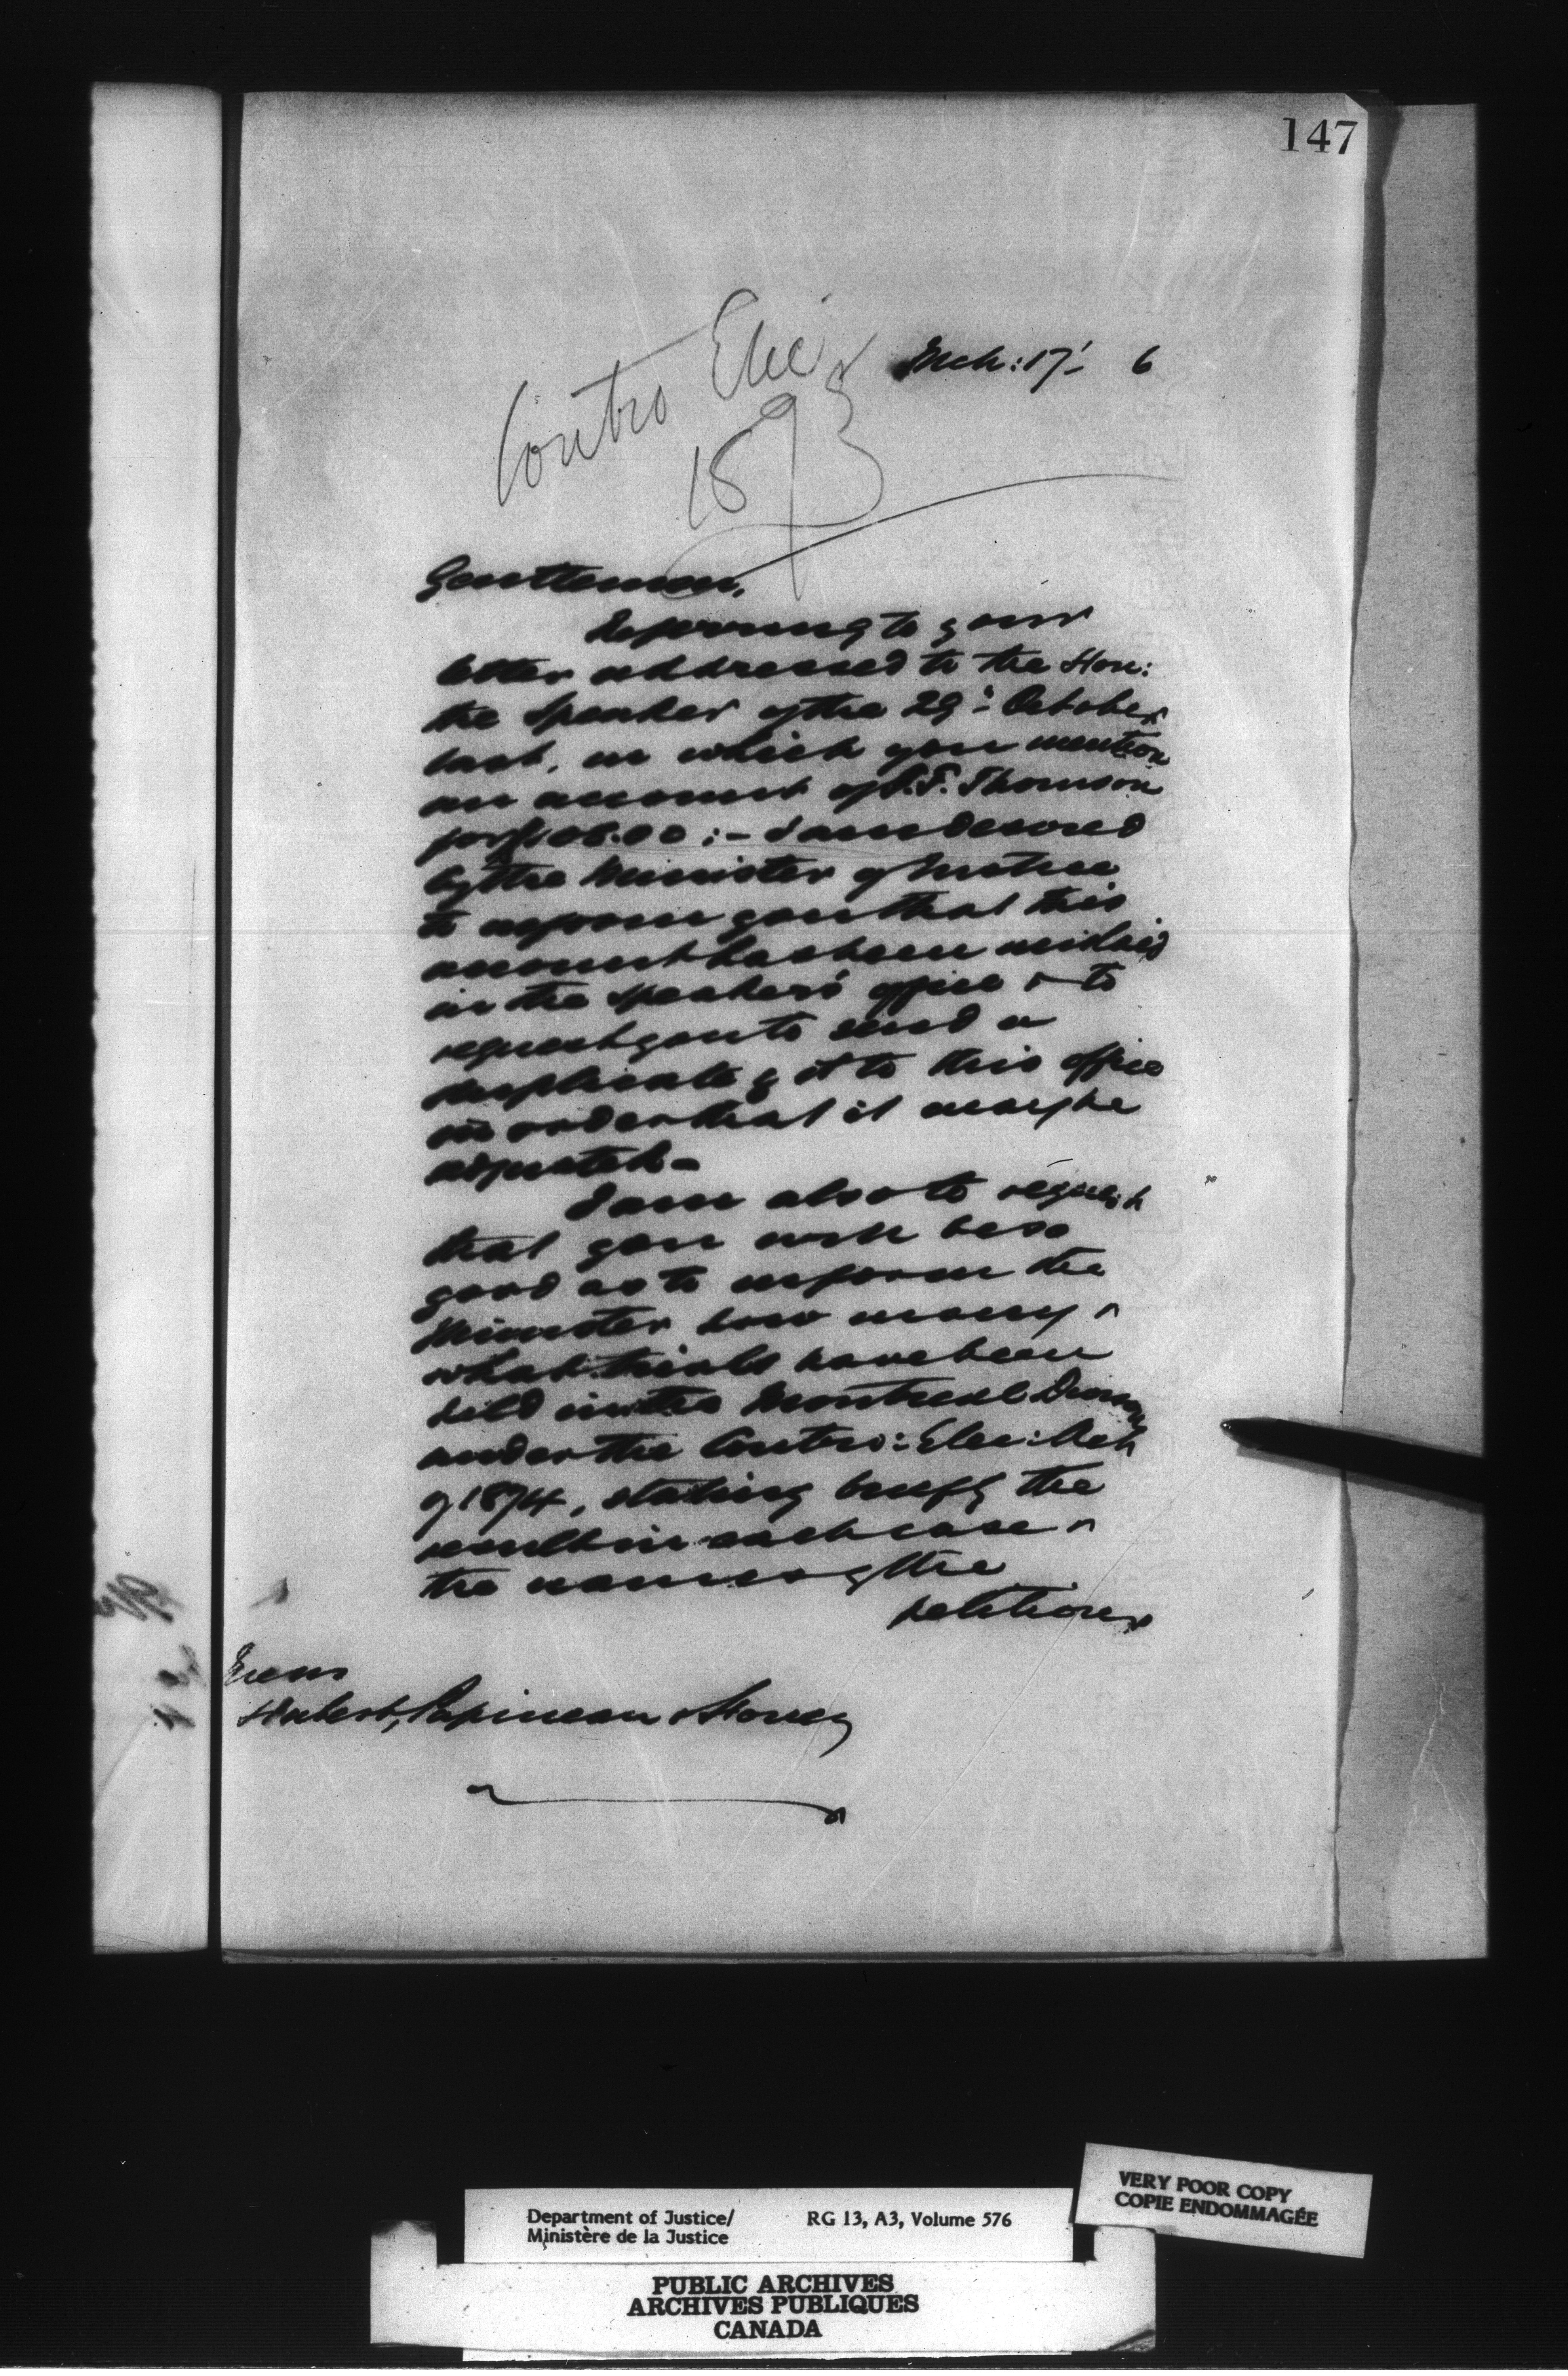 147
Contro Elec
1873
Mch: 17' 6
Gentlemen,
Referring to your
letter addressed to the Hon:
the Speaker of the 29: October
last, in which you mention
an account of S. F. Thomson
for $108.00 :- I am desired
by the Minister of Justice
to inform you that this
account has been mislaid
in the Speaker's office & to
request you to send a
duplicate of it to this office
in order that it may be
adjusted -
I am also to request
that you will be so
good as to inform the
Minister how many &
what trials have been
held in the Montreal
under the Contro: Elec: Act
of 1874, stating briefly the
result in each case &
the names of the
petitioner
Hubert, Papineau & Honey
VERY POOR COPY
COPIE ENDOMMAGÉE
Department of Justice/ RG 13, A3, Volume 576
Ministère de la Justice
PUBLIC ARCHIVES
ARCHIVES PUBLIQUES
CANADA